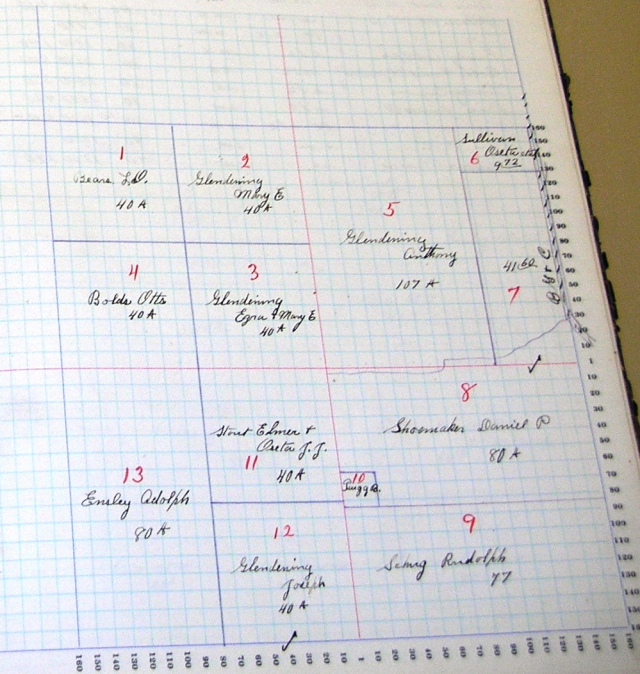 1
Sears L.D.
40 A
2
Glendening
Mary E
40 A
5
Glendening
Anthony
107 A
Sullivan
6 Oseta
9.72
4
Bolds Otto
40 A
3
Glendening
Ezra & Mary E
40 A
41.60
7
B Yr C
8
Shoemaker Daniel P
80 A
Stout Elmer &
Oseta J. J.
11
40 A
10
13
Ensley Adolph
80 A
12
Glendening
Joseph
40 A
9
Rudolph
77
150
140
130
110
100
90
80
70
60
50
40
30
20
10
1
10
20
30
40
50
60
70
80
90
100
110
120
130
140
150
160 150 140 130 120 110 100 90 80 70 60 50 40 30 20 10 1 10 20 30 40 50 60 70 80 90 100 110 120 130 140 150